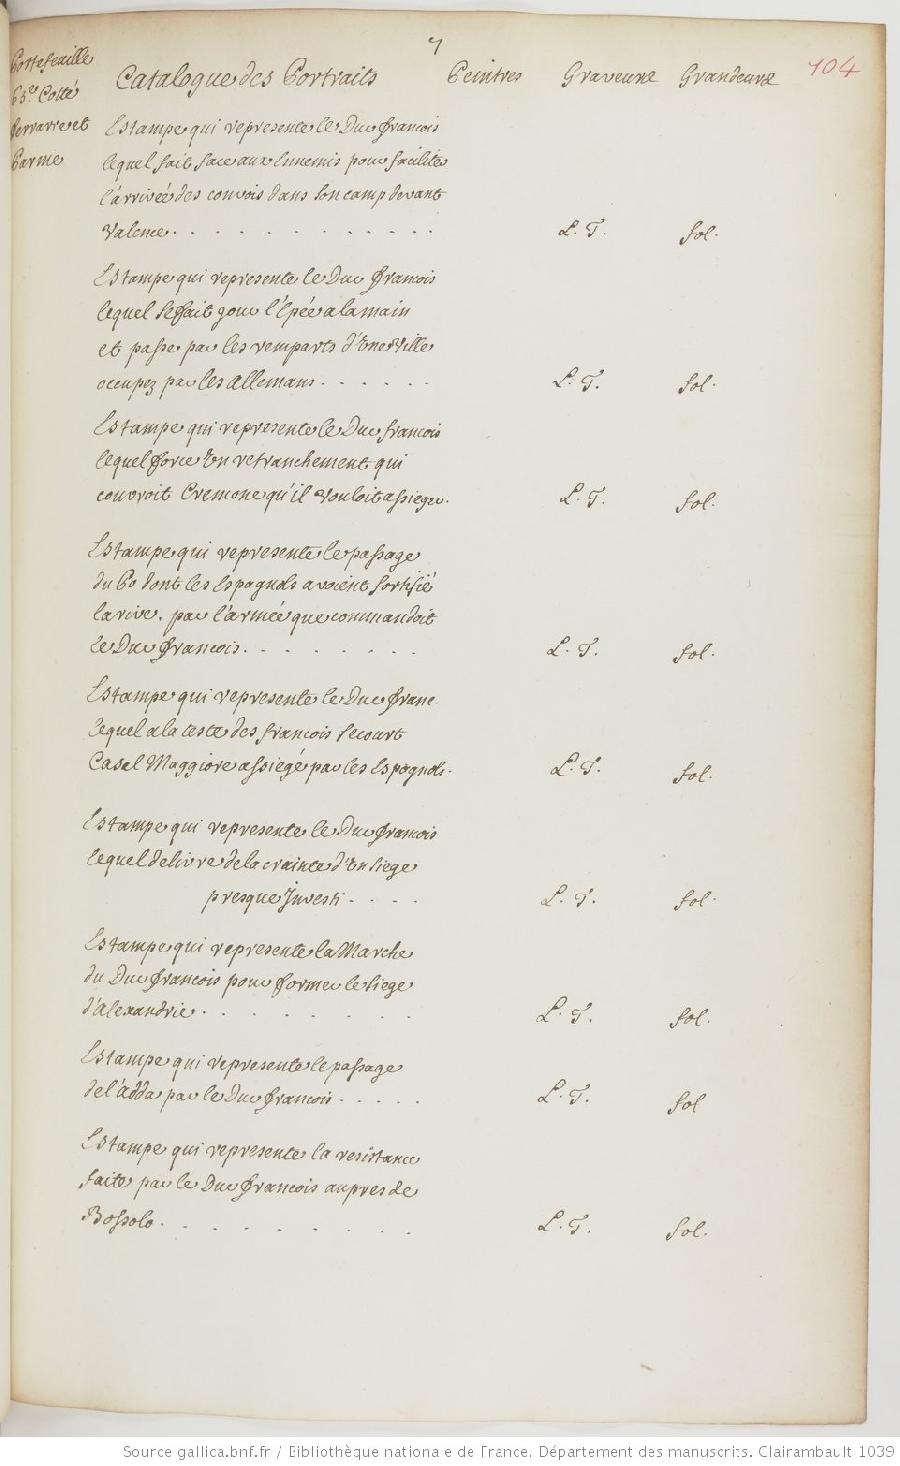 7
104
Portefeuille
65e Cotté
Ferrarre et
Parme
Catalogue des Portraits Peintres Graveure Grandeure
Estampe qui represente le Duc francois
lequel fait face aux Ennemis pour facilite
l'arrivée des convois dans son camp devant
Valence . . . . . . . . . . . L. T. fol.
Estampe qui represente le Duc francois
lequel se fait jour l'Epée a la main
et passe par les remparts d'Une Ville
occupez par les Allemans . . . . . . L. T. fol.
Estampe qui represente le Duc francois
lequel force Un retranchement qui
couvroit Cremone qu'il vouloit assieger. L. T. fol.
Estampe qui represente le passage
du Po dont les Espagnols avoient fortifié
la rive. par l'armée que commandoit
le Duc francois . . . . . . . . L. T. fol.
Estampe qui represente le Duc franc
lequel a la teste des francois secourt
Casal Maggiore assiegé par les Espagnols. L. T. fol.
Estampe qui represente le Duc francois
lequel delivre de la crainte d'Un siege
presque Investi . . . . L. T. fol.
Estampe qui represente la Marche
du Duc francois pour former le siege
d'Alexandrie . . . . . . . L. T. fol.
Estampe qui represente le passage
de l'adda par le Duc francois . . . . . L. T. fol
Estampe qui represente la resistance
faite par le Duc francois aupres de
Bossolo . . . . . . . . . L. T. fol.
Source gallica.bnf.fr / Bibliothèque nationale de France. Département des manuscrits. Clairambault 1039